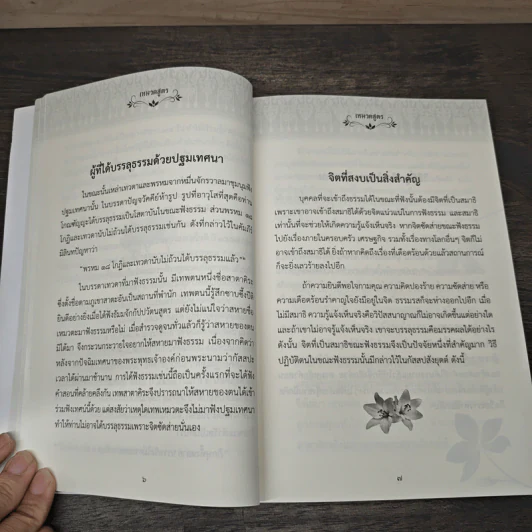 เหมวตสูตร
ผู้ที่ได้บรรลุธรรมด้วยปฐมเทศนา
ในขณะนั้นเหล่าเทวดาและพรหมจากหมื่นจักรวาลมาชุมนุมฟัง
ปฐมเทศนานั้น ในบรรดาปัญจวัคคีย์ห้ารูป รูปที่อาวุโสที่สุดคือท่าน
โกณฑัญญะได้บรรลุธรรมเป็นโสดาบันในขณะฟังธรรม ส่วนพรหม ๑๘
โกฏิและเทวดานับไม่ถ้วนได้บรรลุธรรมเช่นกัน ดังที่กล่าวไว้ในคัมภีร์
มิลินทปัญหาว่า
“พรหม ๑๘ โกฏิและเทวดานับไม่ถ้วนได้บรรลุธรรมแล้ว”
ในบรรดาเทวดาที่มาฟังธรรมนั้น มีเทพตนหนึ่งชื่อสาตาคิระ
ซึ่งตั้งชื่อตามภูเขาสาตะอันเป็นสถานที่พำนัก เทพตนนี้รู้สึกซาบซึ้งปีติ
ยินดีอย่างยิ่งเมื่อได้ฟังธัมมจักกัปปวัตนสูตร แต่ยังไม่แน่ใจว่าสหายชื่อ
เหมวตะมาฟังธรรมหรือไม่ เมื่อสำรวจดูจนทั่วแล้วก็รู้ว่าสหายของตน
มิได้มา จึงกระวนกระวายใจอยากให้สหายมาฟังธรรม เนื่องจากคิดว่า
หลังจากปัจฉิมเทศนาของพระพุทธเจ้าองค์ก่อนพระนามว่ากัสสปะ
เวลาได้ผ่านมาช้านาน การได้ฟังธรรมเช่นนี้ถือเป็นครั้งแรกที่จะได้ฟัง
คำสอนที่คล้ายคลึงกัน เทพสาตาคิระจึงปรารถนาให้สหายของตนได้เข้า
ร่วมฟังเทศน์นี้ด้วย แต่สงสัยว่าเหตุใดเทพเหมวตะจึงไม่มาฟังปฐมเทศนา
ทำให้ท่านไม่อาจได้บรรลุธรรมเพราะจิตซัดส่ายนั่นเอง
๖
เหมวตสูตร
จิตที่สงบเป็นสิ่งสำคัญ
บุคคลที่จะเข้าถึงธรรมได้ในขณะที่ฟังนั้นต้องมีจิตที่เป็นสมาธิ
เพราะเขาอาจเข้าถึงสมาธิได้ด้วยจิตแน่วแน่ในการฟังธรรม และสมาธิ
เท่านั้นที่จะช่วยให้เกิดความรู้แจ้งเห็นจริง หากจิตซัดส่ายขณะฟังธรรม
ไปยังเรื่องภายในครอบครัว เศรษฐกิจ รวมทั้งเรื่องทางโลกอื่นๆ จิตก็ไม่
อาจเข้าถึงสมาธิได้ ยิ่งถ้าหากคิดถึงเรื่องที่เดือดร้อนด้วยแล้วสถานการณ์
ก็จะยิ่งเลวร้ายลงไปอีก
ถ้าความยินดีพอใจกามคุณ ความคิดปองร้าย ความซัดส่าย หรือ
ความเดือดร้อนรำคาญใจยังมีอยู่ในจิต ธรรมรสก็จะห่างออกไปอีก เมื่อ
ไม่มีสมาธิ ความรู้แจ้งเห็นจริงคือวิปัสสนาญาณก็ไม่อาจเกิดขึ้นแต่อย่างใด
และถ้าเขาไม่อาจรู้แจ้งเห็นจริง เขาจะบรรลุธรรมคือมรรคผลได้อย่างไร
ดังนั้น จิตที่เป็นสมาธิขณะฟังธรรมจึงเป็นปัจจัยหนึ่งที่สำคัญมาก วิธี
ปฏิบัติตนในขณะฟังธรรมนั้นมีกล่าวไว้ในกัสสปสังยุตต์ ดังนี้
๗